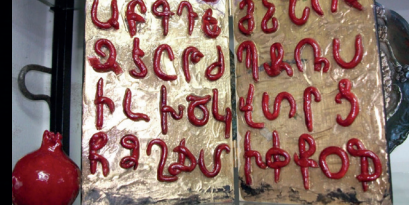 Ա Բ Գ Դ Ե
Զ Է Ը Թ Ժ
Ի Լ Խ Ծ Կ
Հ Ձ Ղ Ճ Մ
Յ Ն Շ Ո Չ
Պ Ջ Ռ Ս
Վ Տ Ր Ց
Ւ Փ Ք Օ Ֆ